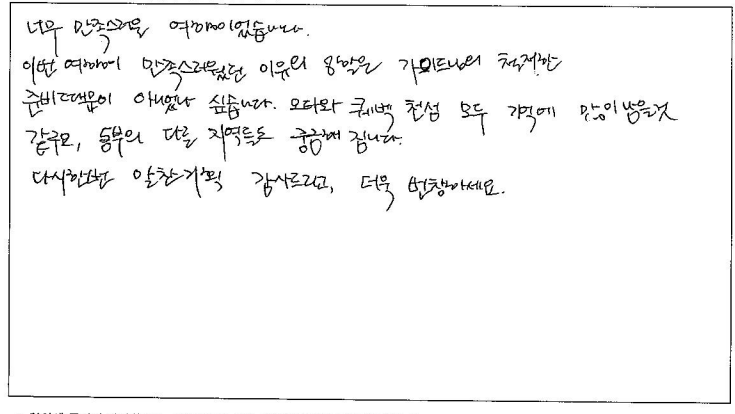 너무 만족스러운 여행이었습니다.
이번 여행이 만족스러웠던 이유의 왕말은 가이드님의 철저한
준비때문이 아니었나 싶습니다. 오타와 퀘벡 천섬 모두 기억에 많이 남을것
같구요, 동부의 다른 지역들도 궁금해 집니다.
다시한번 알찬계획 감사드리고, 더욱 번창하세요.